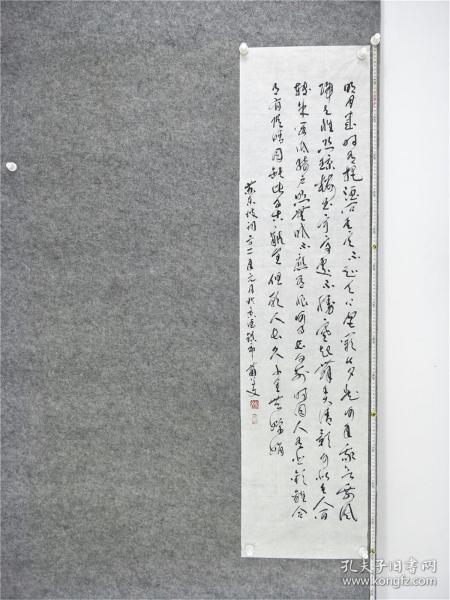 明月幾时有把酒问青天不知天上宫阙今夕是何年我欲乘风
归去惟恐琼楼玉宇高处不胜寒起舞弄清影何似在人间
转朱阁低绮户照无眠不应有恨何事长向别时圆人有悲欢离合
月有阴晴圆缺此事古难全但愿人长久千里共婵娟
苏东坡词 元月於景德镇市
孔夫子旧书网
www.kongfz.com